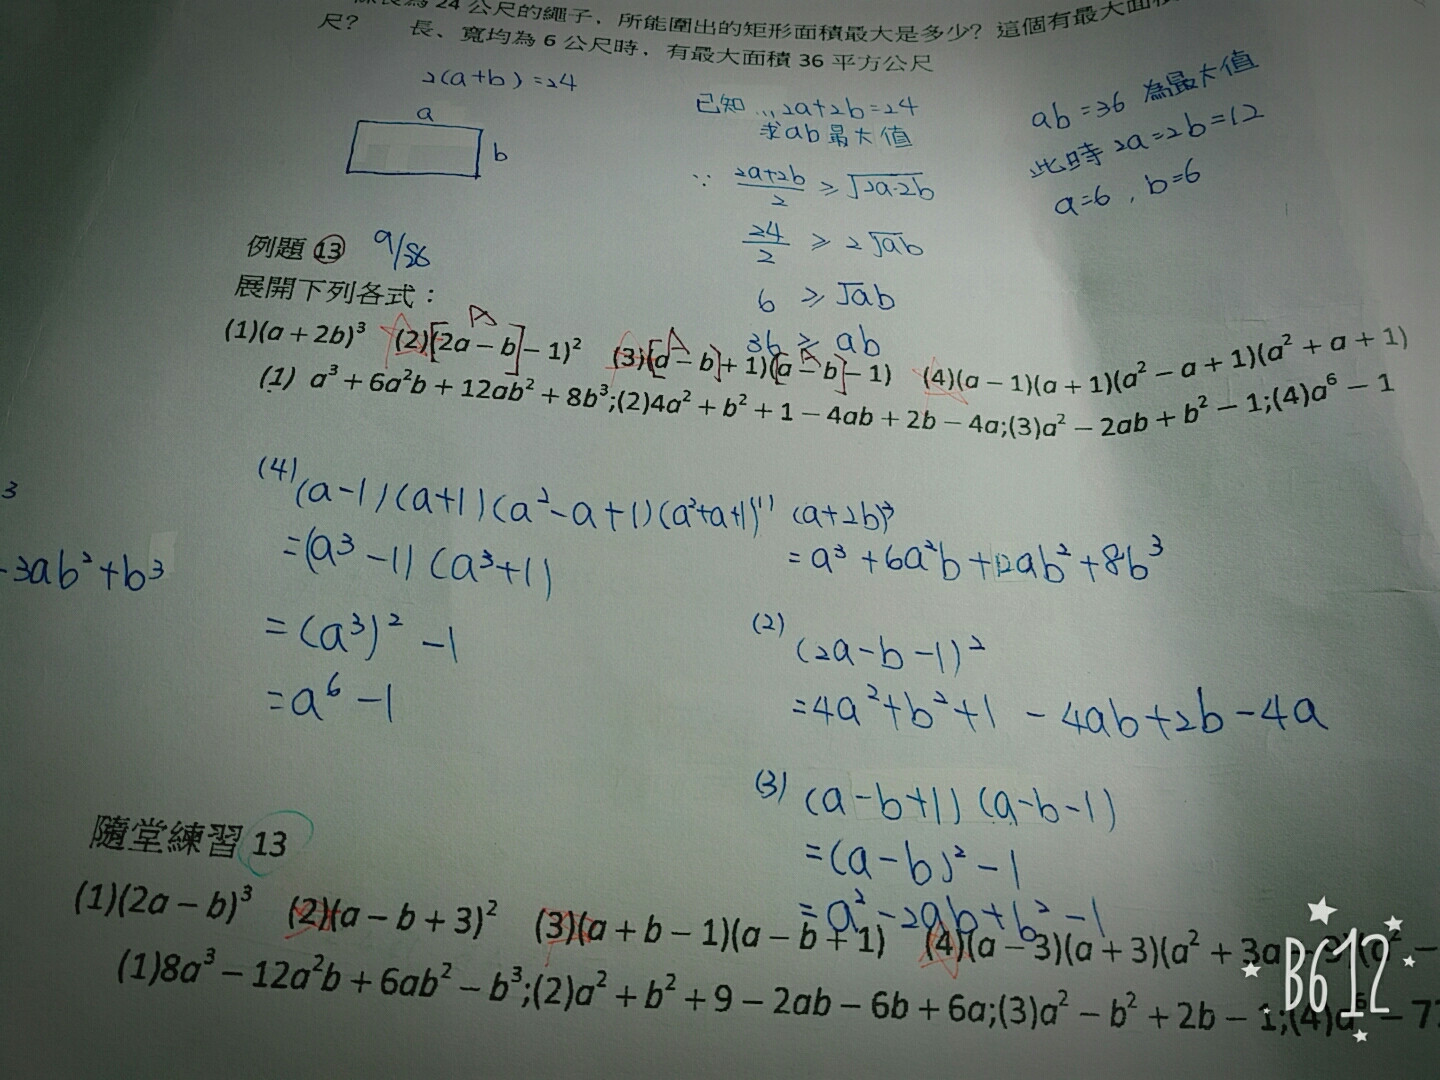 24 公尺的繩子，所能圍出的矩形面積最大是多少？這個有最大面積
尺？ 長、寬均為 6 公尺時，有最大面積 36 平方公尺
2(a+b)=24
a
b
已知 2a+2b=24
求ab最大值
∵ (2a+2b)/2 ≥ √(2a·2b)
24/2 ≥ 2√ab
6 ≥ √ab
36 ≥ ab
ab=36 為最大值
此時 2a=2b=12
a=6 , b=6
例題 13
展開下列各式：
(1)(a + 2b)³ (2)(2a − b − 1)² (3)(a − b + 1)(a − b − 1) (4)(a − 1)(a + 1)(a² − a + 1)(a² + a + 1)
(1) a³ + 6a²b + 12ab² + 8b³;(2)4a² + b² + 1 − 4ab + 2b − 4a;(3)a² − 2ab + b² − 1;(4)a⁶ − 1
3
-3ab²+b³
(4) (a-1)(a+1)(a²-a+1)(a²+a+1)
=(a³-1)(a³+1)
=(a³)²-1
=a⁶-1
(1) (a+2b)³
=a³+6a²b+12ab²+8b³
(2) (2a-b-1)²
=4a²+b²+1-4ab+2b-4a
(3) (a-b+1)(a-b-1)
=(a-b)²-1
=a²-2ab+b²-1
隨堂練習 13
(1)(2a − b)³ (2)(a − b + 3)² (3)(a + b − 1)(a − b + 1) (4)(a − 3)(a + 3)(a² + 3a
(1)8a³ − 12a²b + 6ab² − b³;(2)a² + b² + 9 − 2ab − 6b + 6a;(3)a² − b² + 2b − 1;(4)a⁶ − 7
B612